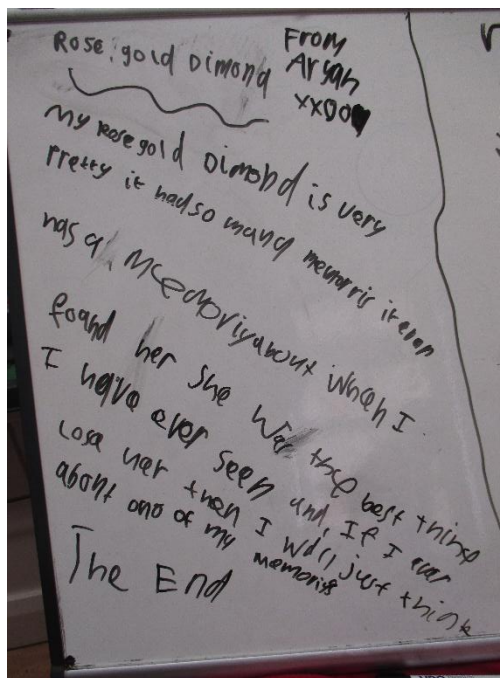 Rose gold Dimond
From
Aryan
xxoo
My Rose gold Dimond is very
Pretty it had so mand memorris it even
has a mcemoriy about when I
found her she was the best thing
I have ever seen and If I ever
Lose her then I will just think
about one of my memoriss
The End